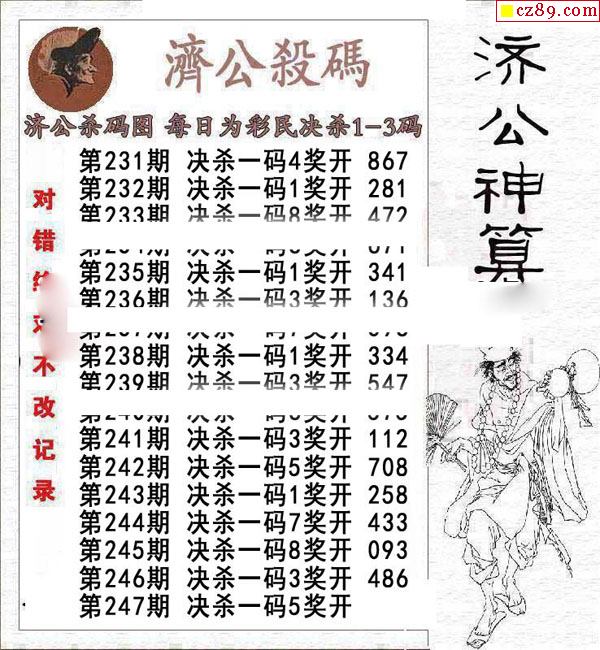 cz89.com
濟公殺碼
济公杀码图 每日为彩民决杀1-3码
第231期 决杀一码4奖开 867
第232期 决杀一码1奖开 281
第233期 决杀一码8奖开 472
第235期 决杀一码1奖开 341
第236期 决杀一码3奖开 136
第238期 决杀一码1奖开 334
第239期 决杀一码3奖开 547
第241期 决杀一码3奖开 112
第242期 决杀一码5奖开 708
第243期 决杀一码1奖开 258
第244期 决杀一码7奖开 433
第245期 决杀一码8奖开 093
第246期 决杀一码3奖开 486
第247期 决杀一码5奖开
对错 不改记录
济公神算